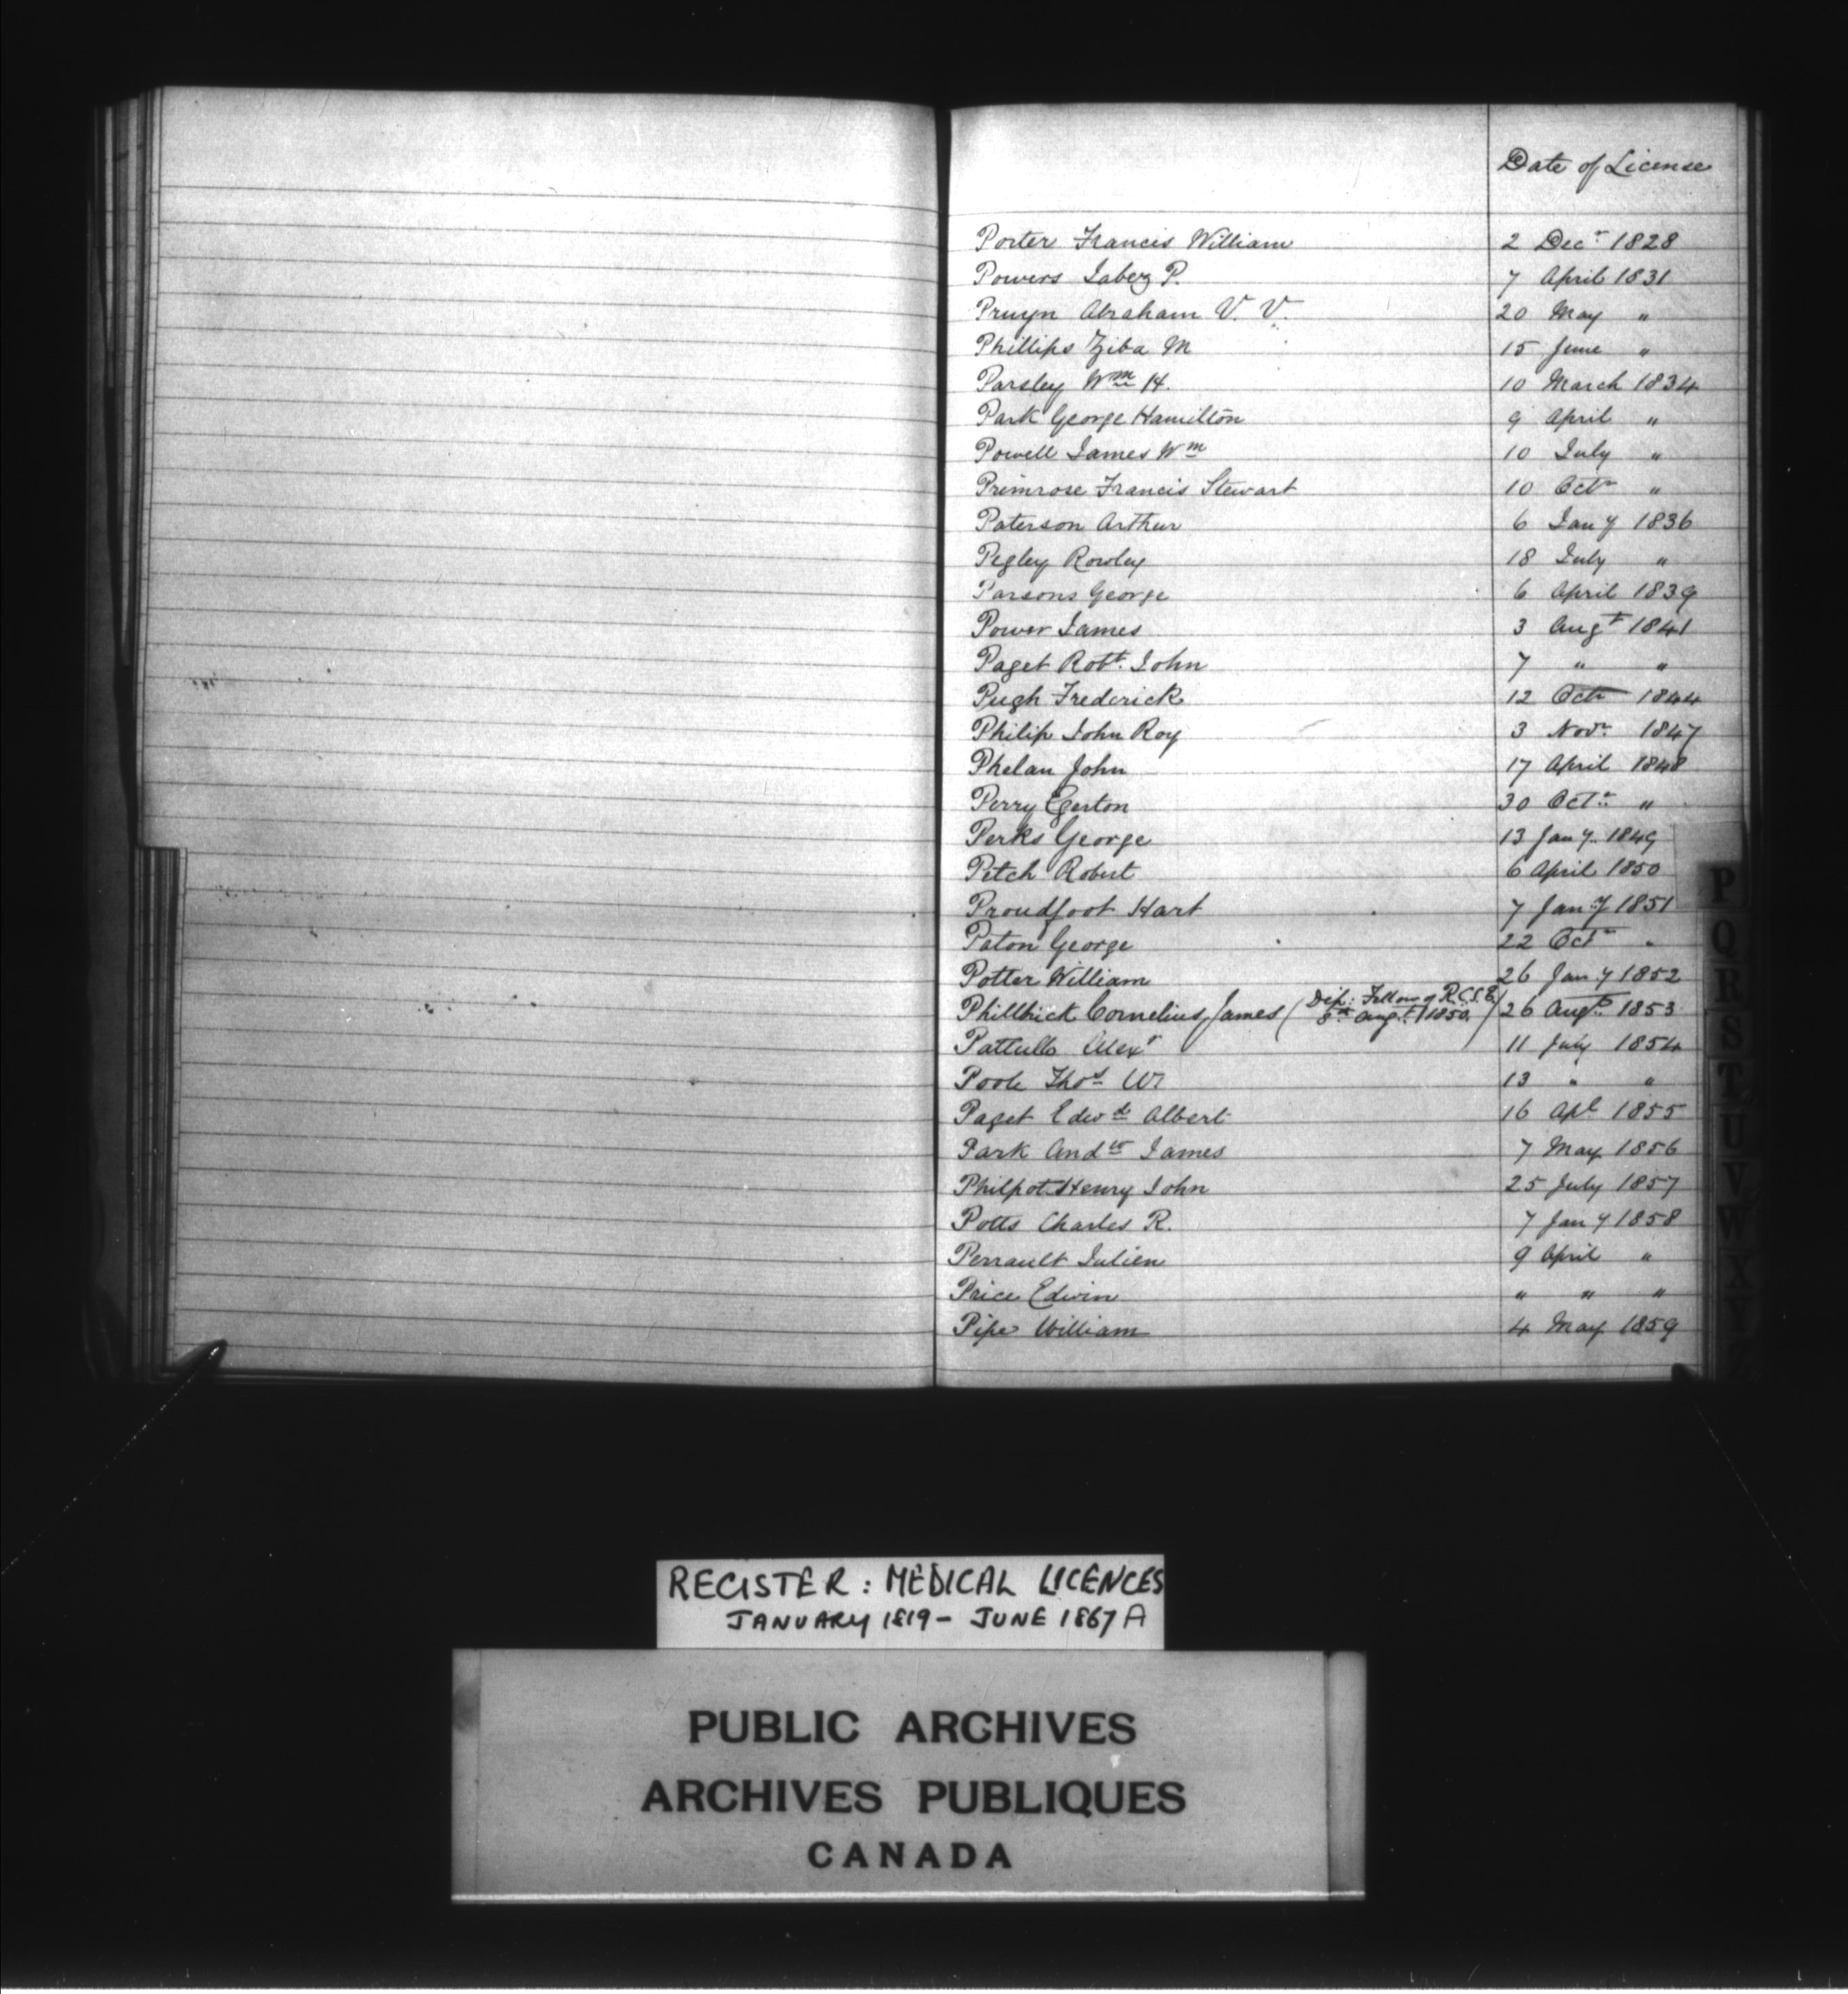 Date of License
Porter Francis William 2 Decr 1828
Powers Jabez P. 7 April 1831
Pruyn Abraham V. V. 20 May "
Phillips Ziba M 15 June "
Parsley Wm H. 10 March 1834
Park George Hamilton 9 April "
Powell James Wm 10 July "
Primrose Francis Stewart 10 Octr "
Paterson Arthur 6 Jany 1836
Pegley Rowley 18 July "
Parsons George 6 April 1839
Power James 3 Augt 1841
Paget Robt. John 7 " "
Pugh Frederick 12 Octr 1844
Philip John Roy 3 Novr 1847
Phelan John 17 April 1848
Perry Egerton 30 Octr "
Perks George 13 Jany. 1849
Petch Robert 6 April 1850
Proudfoot Hart 7 Jany 1851
Paton George 22 Octr "
Potter William 26 Jany 1852
Philbrick Cornelius James (Dip: Fellow of R.C.S.E. 8th Augt. 1850.) 26 Augt 1853
Pattullo Alexr 11 July 1854
Poole Thos W. 13 " "
Paget Edwd Albert 16 Apl 1855
Park Andw James 7 May 1856
Philpot Henry John 25 July 1857
Potts Charles R. 7 Jany 1858
Perrault Julien 9 April "
Price Edwin " " "
Pipe William 4 May 1859
P
Q
R
S
T
U
V
W
X
REGISTER: MEDICAL LICENCES
JANUARY 1819 - JUNE 1867 A
PUBLIC ARCHIVES
ARCHIVES PUBLIQUES
CANADA